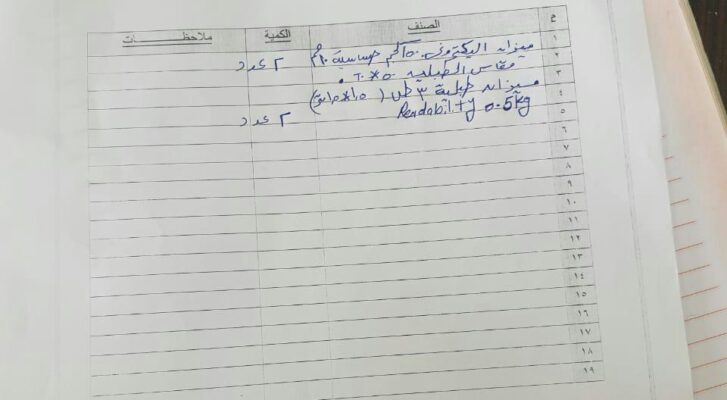 م الصنف الكمية ملاحظـــــــــات
١ ميزان اليكترونى ١٥٠كجم حساسية ١٠جم ٢ عدد
٢ مقاس الطبلية ٥٠*٦٠
٣ ميزان طبلية ٣ طن
٤ Readability 0.5kg ٢ عدد
٥
٦
٧
٨
٩
١٠
١١
١٢
١٣
١٤
١٥
١٦
١٧
١٨
١٩